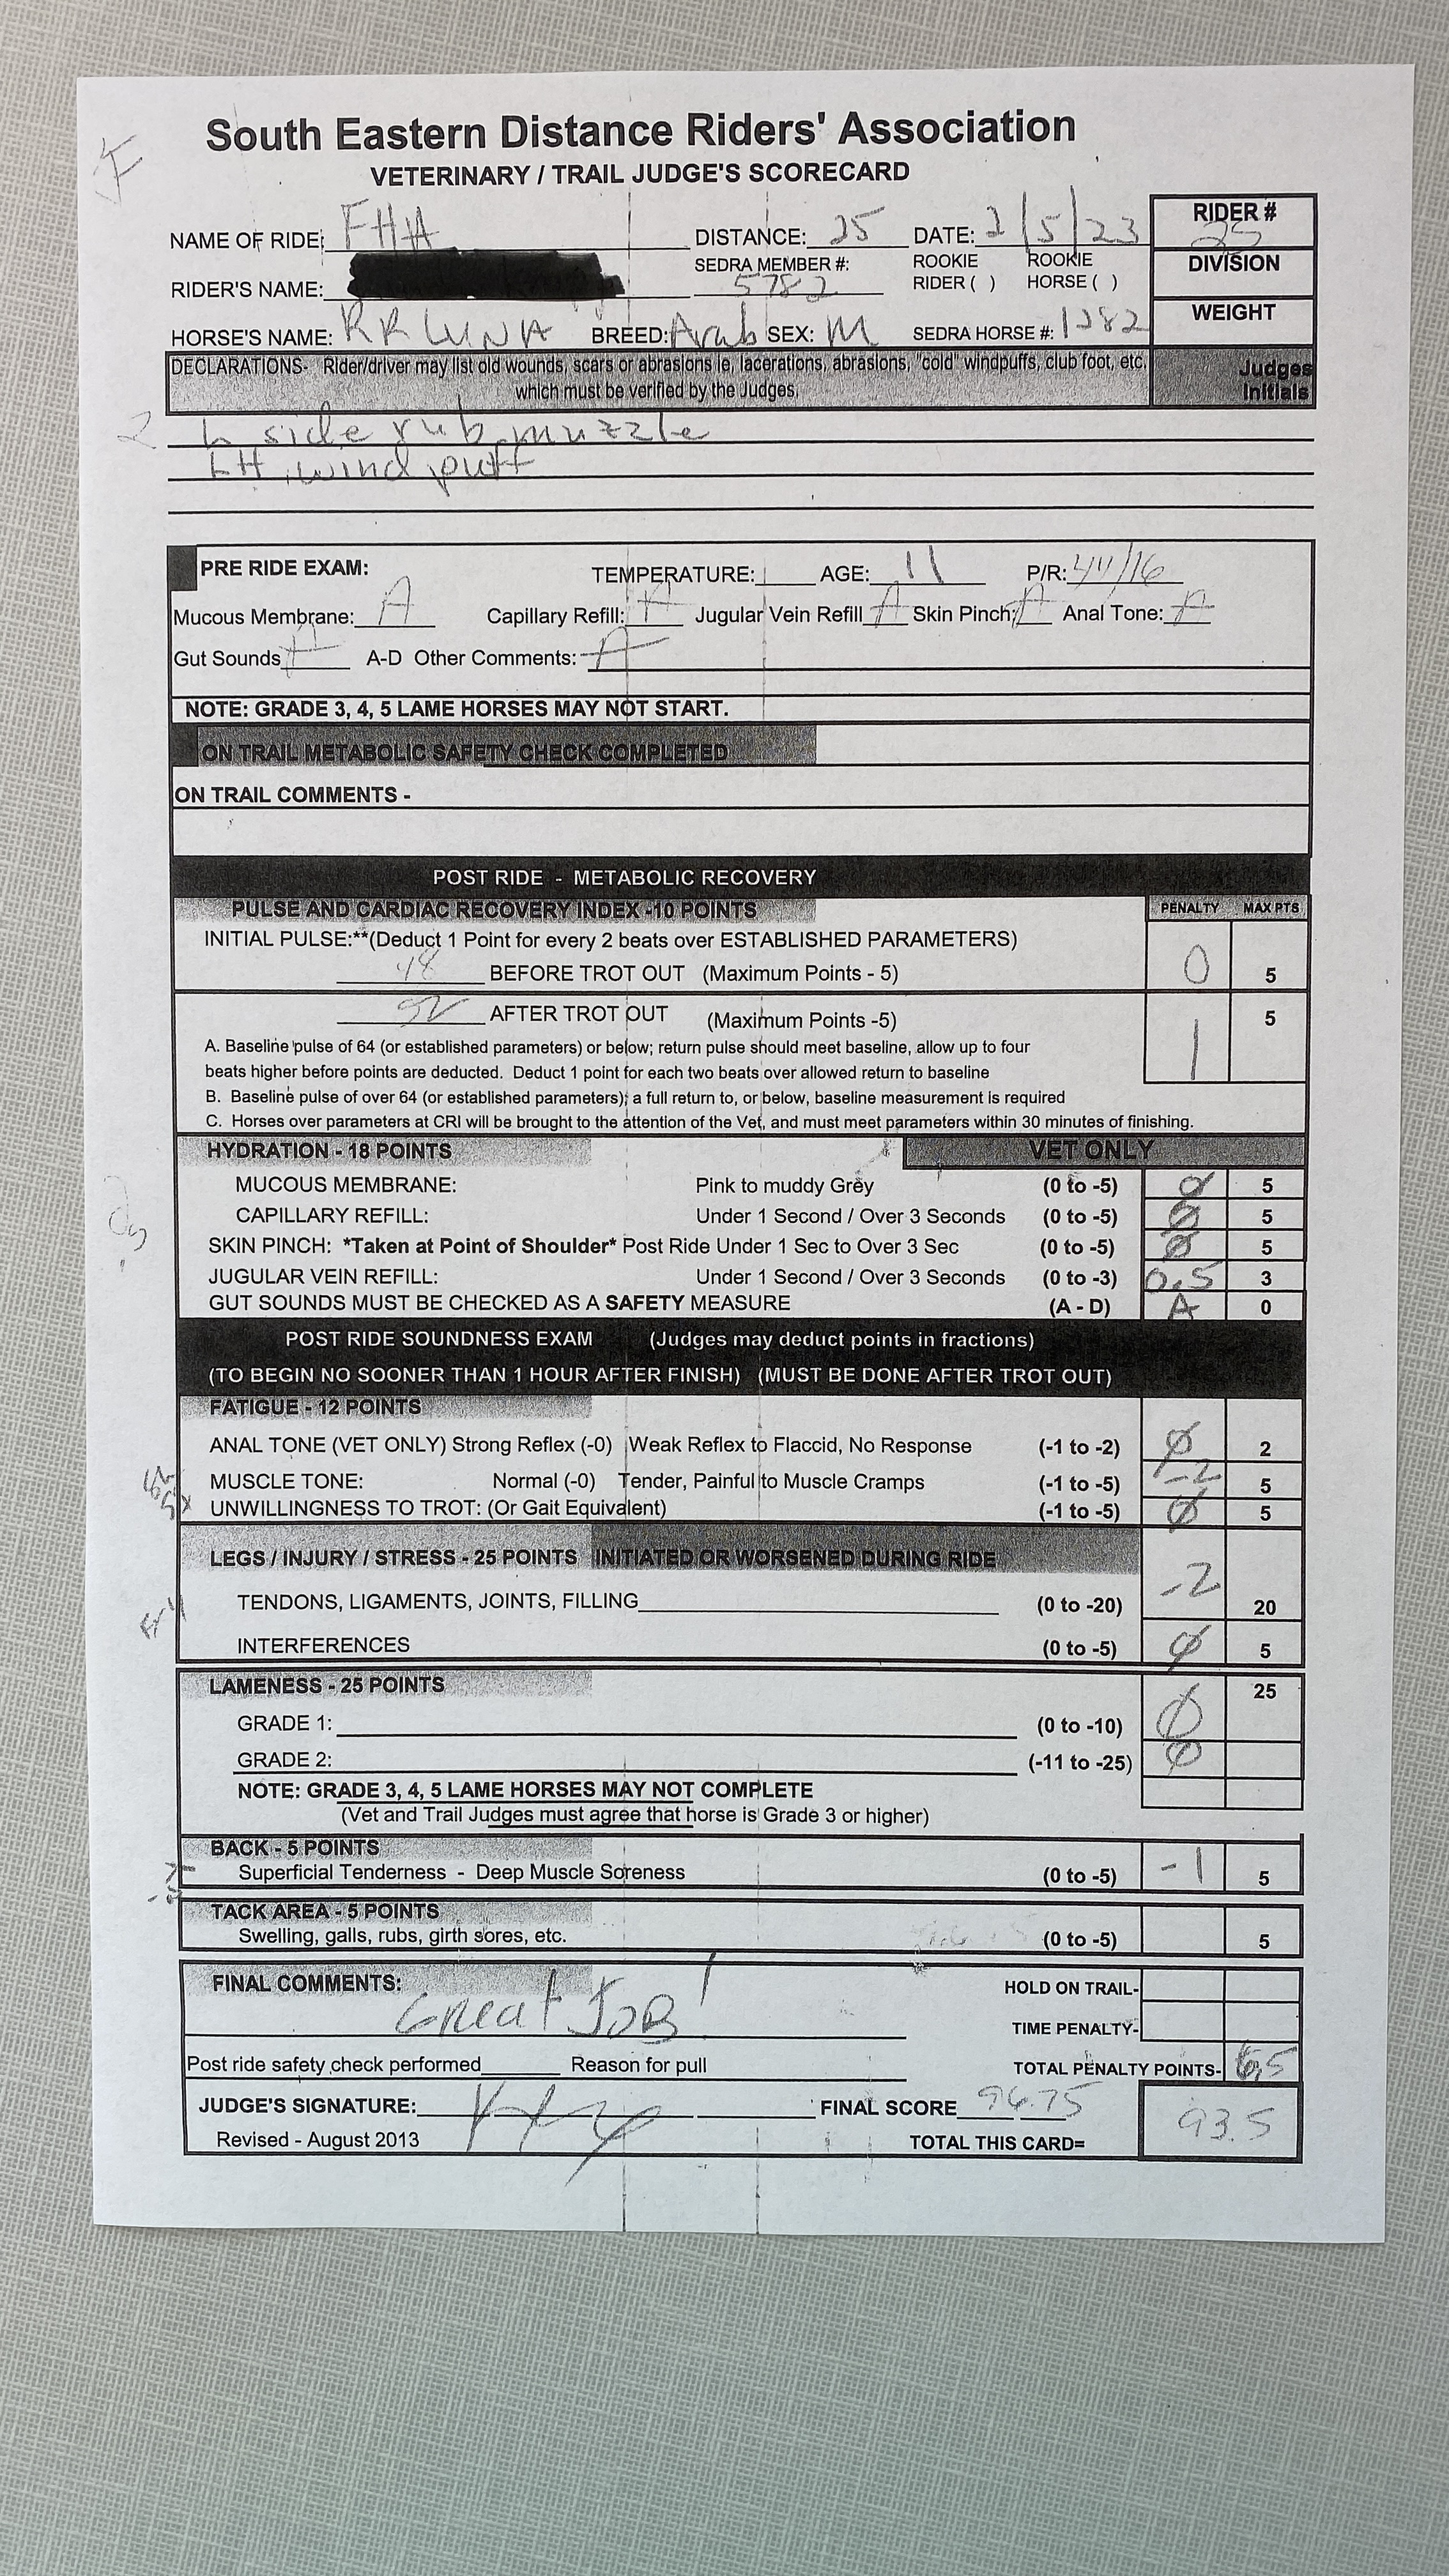 South Eastern Distance Riders' Association
VETERINARY / TRAIL JUDGE'S SCORECARD
NAME OF RIDE: FHA DISTANCE: 25 DATE: 2/5/23 RIDER # 25
RIDER'S NAME: SEDRA MEMBER #: 5782 ROOKIE RIDER ( ) ROOKIE HORSE ( ) DIVISION
HORSE'S NAME: RR LUNA BREED: Arab SEX: M SEDRA HORSE #: 1282 WEIGHT
DECLARATIONS- Rider/driver may list old wounds, scars or abrasions ie, lacerations, abrasions, "cold" windpuffs, club foot, etc. Judges
which must be verified by the Judges. Initials
L side rub muzzle
LH wind puff
PRE RIDE EXAM: TEMPERATURE: AGE: 11 P/R: 44/16
Mucous Membrane: A Capillary Refill: A Jugular Vein Refill A Skin Pinch: A Anal Tone: A
Gut Sounds A A-D Other Comments: A
NOTE: GRADE 3, 4, 5 LAME HORSES MAY NOT START.
ON TRAIL METABOLIC SAFETY CHECK COMPLETED
ON TRAIL COMMENTS -
POST RIDE - METABOLIC RECOVERY
PULSE AND CARDIAC RECOVERY INDEX -10 POINTS PENALTY MAX PTS
INITIAL PULSE:**(Deduct 1 Point for every 2 beats over ESTABLISHED PARAMETERS)
48 BEFORE TROT OUT (Maximum Points - 5) 0 5
52 AFTER TROT OUT (Maximum Points -5) 1 5
A. Baseline pulse of 64 (or established parameters) or below; return pulse should meet baseline, allow up to four
beats higher before points are deducted. Deduct 1 point for each two beats over allowed return to baseline
B. Baseline pulse of over 64 (or established parameters); a full return to, or below, baseline measurement is required
C. Horses over parameters at CRI will be brought to the attention of the Vet, and must meet parameters within 30 minutes of finishing.
HYDRATION - 18 POINTS VET ONLY
MUCOUS MEMBRANE: Pink to muddy Grey (0 to -5) Ø 5
CAPILLARY REFILL: Under 1 Second / Over 3 Seconds (0 to -5) Ø 5
SKIN PINCH: *Taken at Point of Shoulder* Post Ride Under 1 Sec to Over 3 Sec (0 to -5) Ø 5
JUGULAR VEIN REFILL: Under 1 Second / Over 3 Seconds (0 to -3) 0.5 3
GUT SOUNDS MUST BE CHECKED AS A SAFETY MEASURE (A - D) A 0
POST RIDE SOUNDNESS EXAM (Judges may deduct points in fractions)
(TO BEGIN NO SOONER THAN 1 HOUR AFTER FINISH) (MUST BE DONE AFTER TROT OUT)
FATIGUE - 12 POINTS
ANAL TONE (VET ONLY) Strong Reflex (-0) Weak Reflex to Flaccid, No Response (-1 to -2) Ø 2
MUSCLE TONE: Normal (-0) Tender, Painful to Muscle Cramps (-1 to -5) -2 5
UNWILLINGNESS TO TROT: (Or Gait Equivalent) (-1 to -5) Ø 5
LEGS / INJURY / STRESS - 25 POINTS INITIATED OR WORSENED DURING RIDE
TENDONS, LIGAMENTS, JOINTS, FILLING (0 to -20) -2 20
INTERFERENCES (0 to -5) Ø 5
LAMENESS - 25 POINTS 25
GRADE 1: (0 to -10) Ø
GRADE 2: (-11 to -25) Ø
NOTE: GRADE 3, 4, 5 LAME HORSES MAY NOT COMPLETE
(Vet and Trail Judges must agree that horse is Grade 3 or higher)
BACK - 5 POINTS
Superficial Tenderness - Deep Muscle Soreness (0 to -5) -1 5
TACK AREA - 5 POINTS
Swelling, galls, rubs, girth sores, etc. (0 to -5) 5
FINAL COMMENTS: HOLD ON TRAIL-
Great JOB! TIME PENALTY-
Post ride safety check performed Reason for pull TOTAL PENALTY POINTS- 6.5
JUDGE'S SIGNATURE: FINAL SCORE 96.75
Revised - August 2013 TOTAL THIS CARD= 93.5